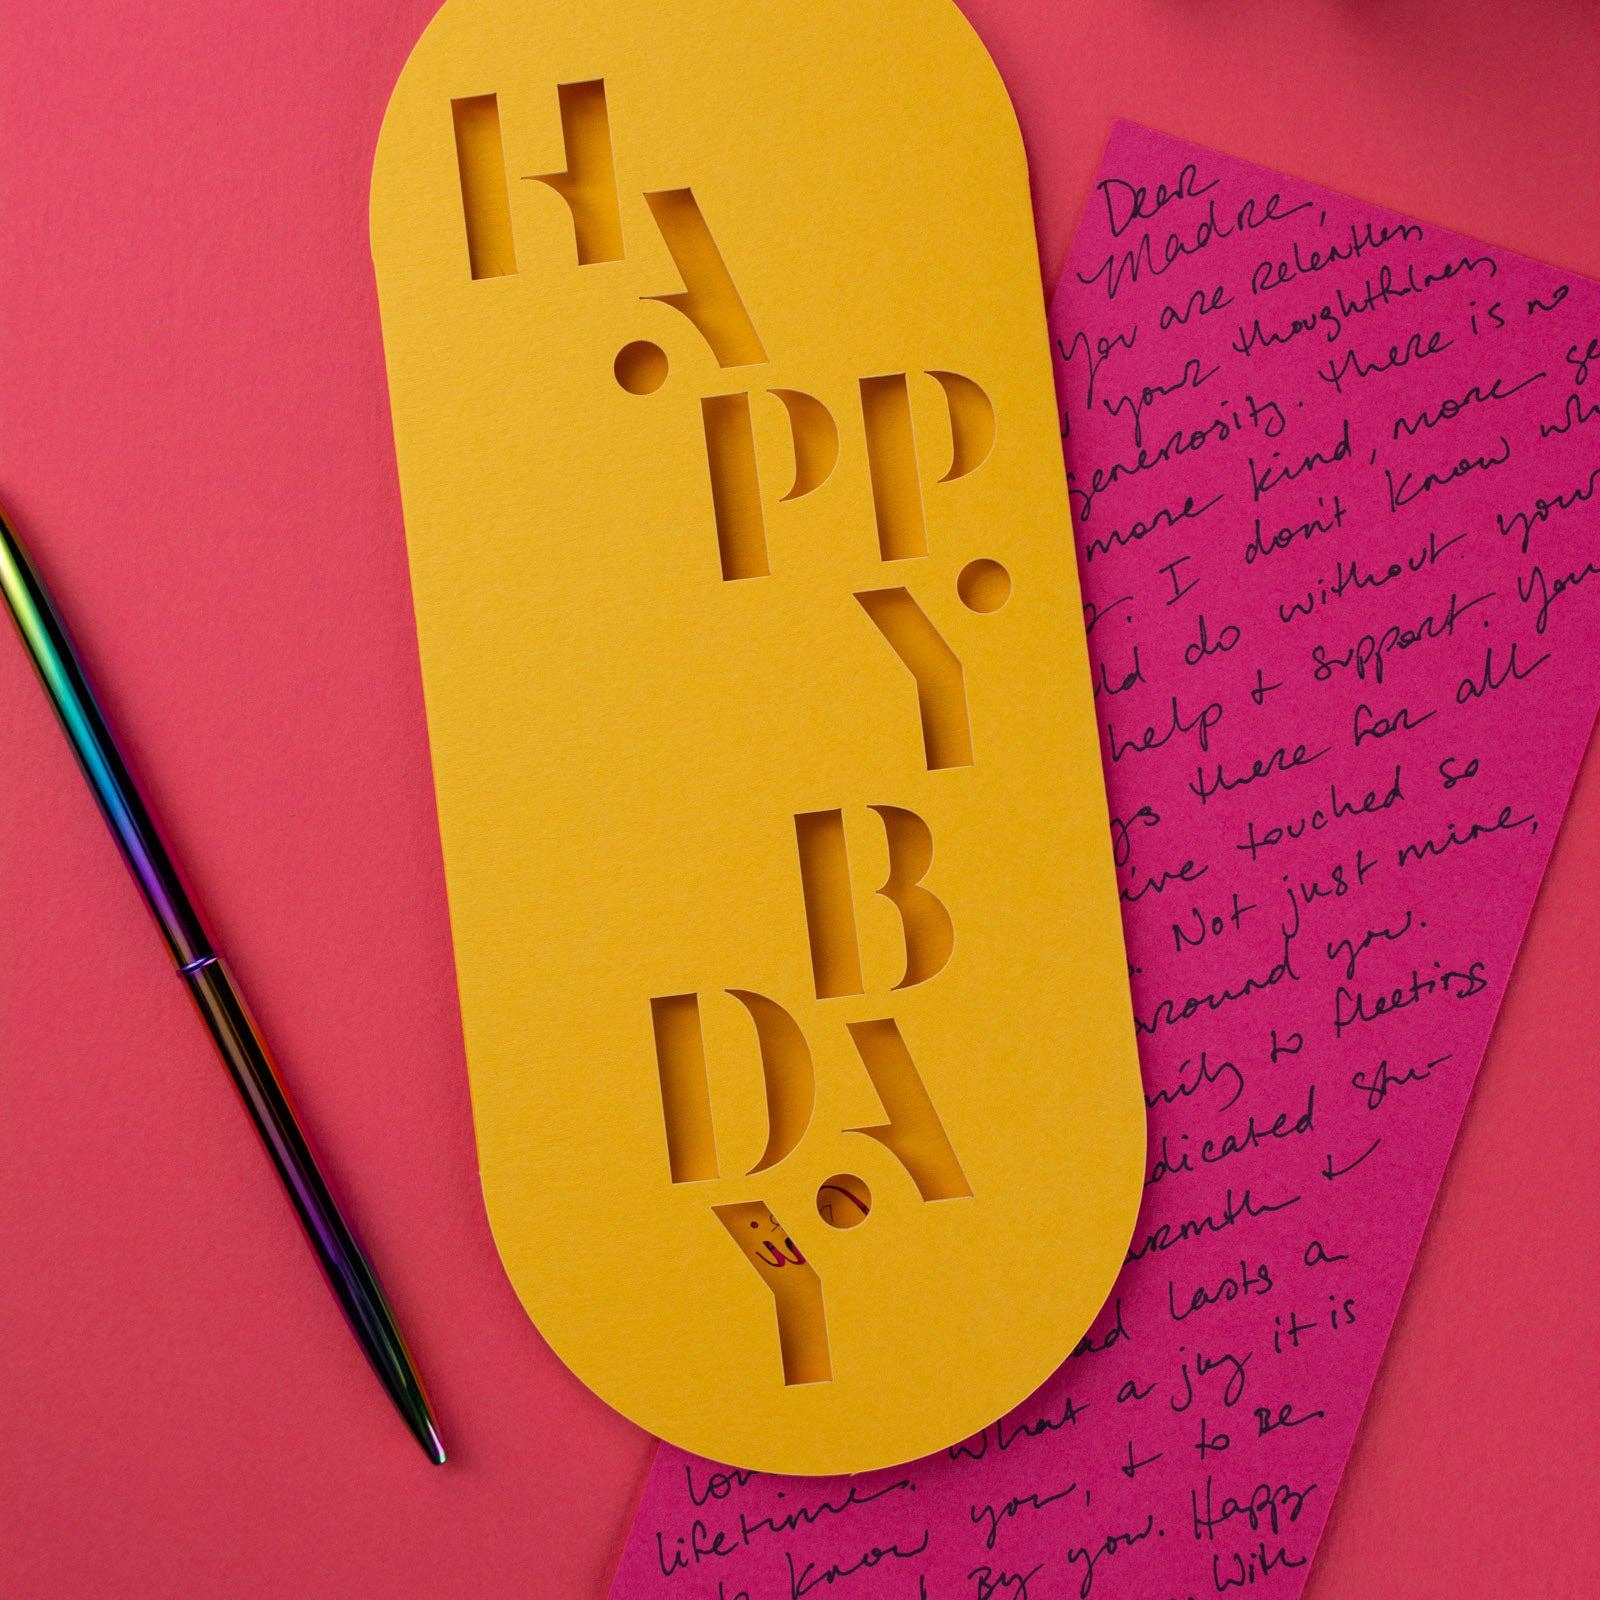 HAPPY
B
DAY
Dear
Madre,
You are relentless
your thoughtfulness
generosity. there is no
more kind, more
. I don't know
do without your
help + support. You
there for all
touched so
. Not just mine,
around you.
to fleeting
Stu-
+
lasts a
What a joy it is
lifetime.
know you, + to Be
By you. Happy
With